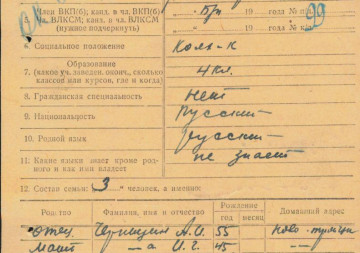 Член ВКП(б); канд. в чл. ВКП(б)
5. Чл. ВЛКСМ; канд. в чл. ВЛКСМ
(нужное подчеркнуть)
19 года № п/б
19 года № п/б
99
6. Социальное положение Кол-к
Образование
7. (какое уч. заведен. оконч., сколько
классов или курсов, где и когда)
4 кл.
8. Гражданская специальность нет
9. Национальность Русский
10. Родной язык русский
11. Какие языки знает кроме род-
ного и как ими владеет не знает
12. Состав семьи: 3 человек, а именно:
Родство Фамилия, имя и отчество Рождение Домашний адрес
год месяц
отец А.И. 55
Мать —а И.Г. 45 —"—